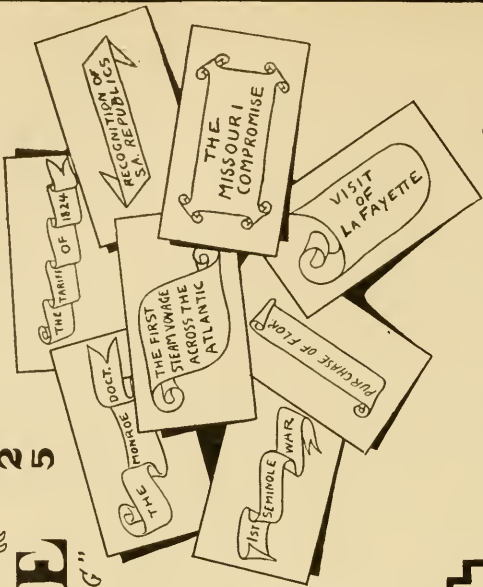 THE TARIFF OF 1824
RECOGNITION OF
S.A. REPUBLICS
THE
MISSOURI
COMPROMISE
THE MONROE DOCT.
THE FIRST
STEAM VOYAGE
ACROSS THE
ATLANTIC
VISIT
OF
LA FAYETTE
PURCHASE OF FLOR.
1ST SEMINOLE WAR
25
E
G"